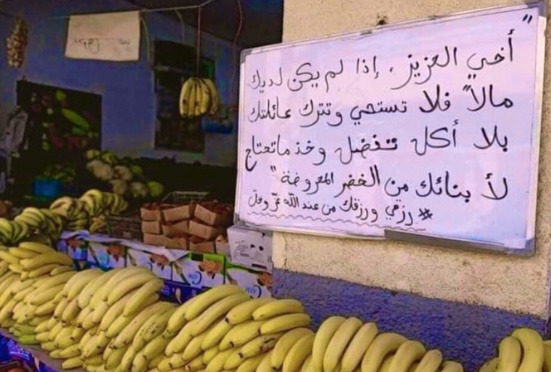 "أخي العزيز، إذا لم يكن لديك
مالاً فلا تستحي وتترك عائلتك
بلا أكل تفضل وخذ ما تحتاج
لأبنائك من الخضر المعروضة"
# رزقي ورزقك من عند الله عزّ وجل